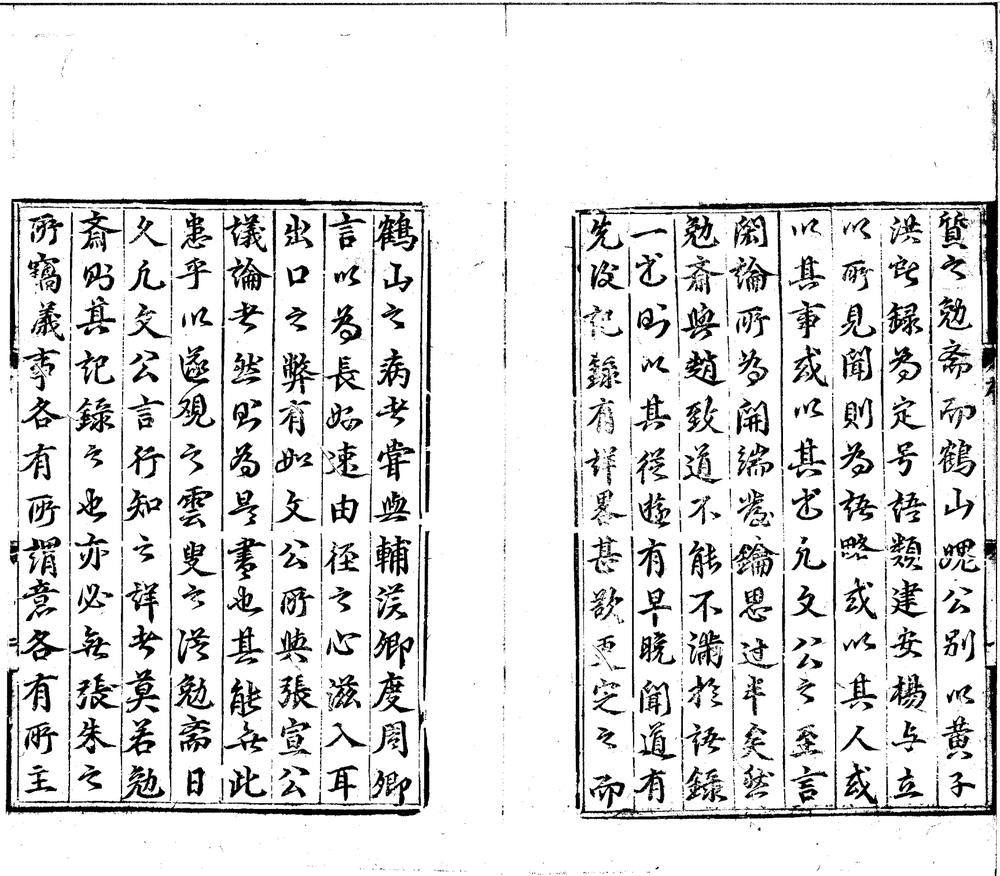 質之勉斋而鶴山魏公别以黄子
洪録為定号語類建安楊与立
以所見聞則為語略或以其人或
以其事或以其書凡文公之至言
閎論所為開端發鑰思过半矣然
勉斋與趙致道不能不滿於語録
一書則以其從遊有早晚聞道有
先後記錄有詳畧甚欲更定之而
鶴山之病者嘗與輔漢卿度周卿
言以為長好速由徑之心滋入耳
出口之弊有如文公所與張宣公
議論者然則為是書也其能無此
患乎以邃觀之雲叟之從勉斋日
久凡文公言行知之詳者莫若勉
斋則其記録之也亦必無張朱之
所竊議事各有所謂意各有所主